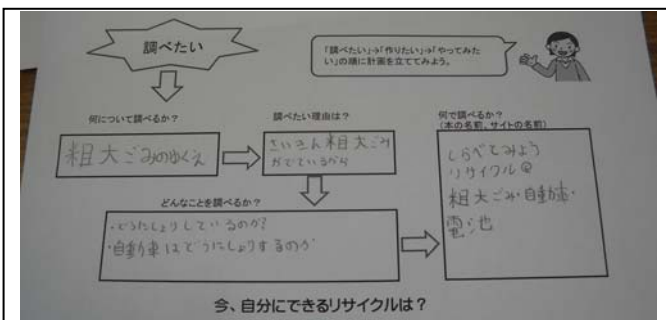 調べたい
「調べたい」→「作りたい」→「やってみた
い」の順に計画を立ててみよう。
何について調べるか？
粗大ごみのゆくえ
調べたい理由は？
さいきん粗大ごみ
がでているから
何で調べるか？
（本の名前、サイトの名前）
しらべてみよう
リサイクル
粗大ごみ・自動車・
電池
どんなことを調べるか？
・どうしょりしているのか?
・自動車はどうしょりするのか
今、自分にできるリサイクルは？